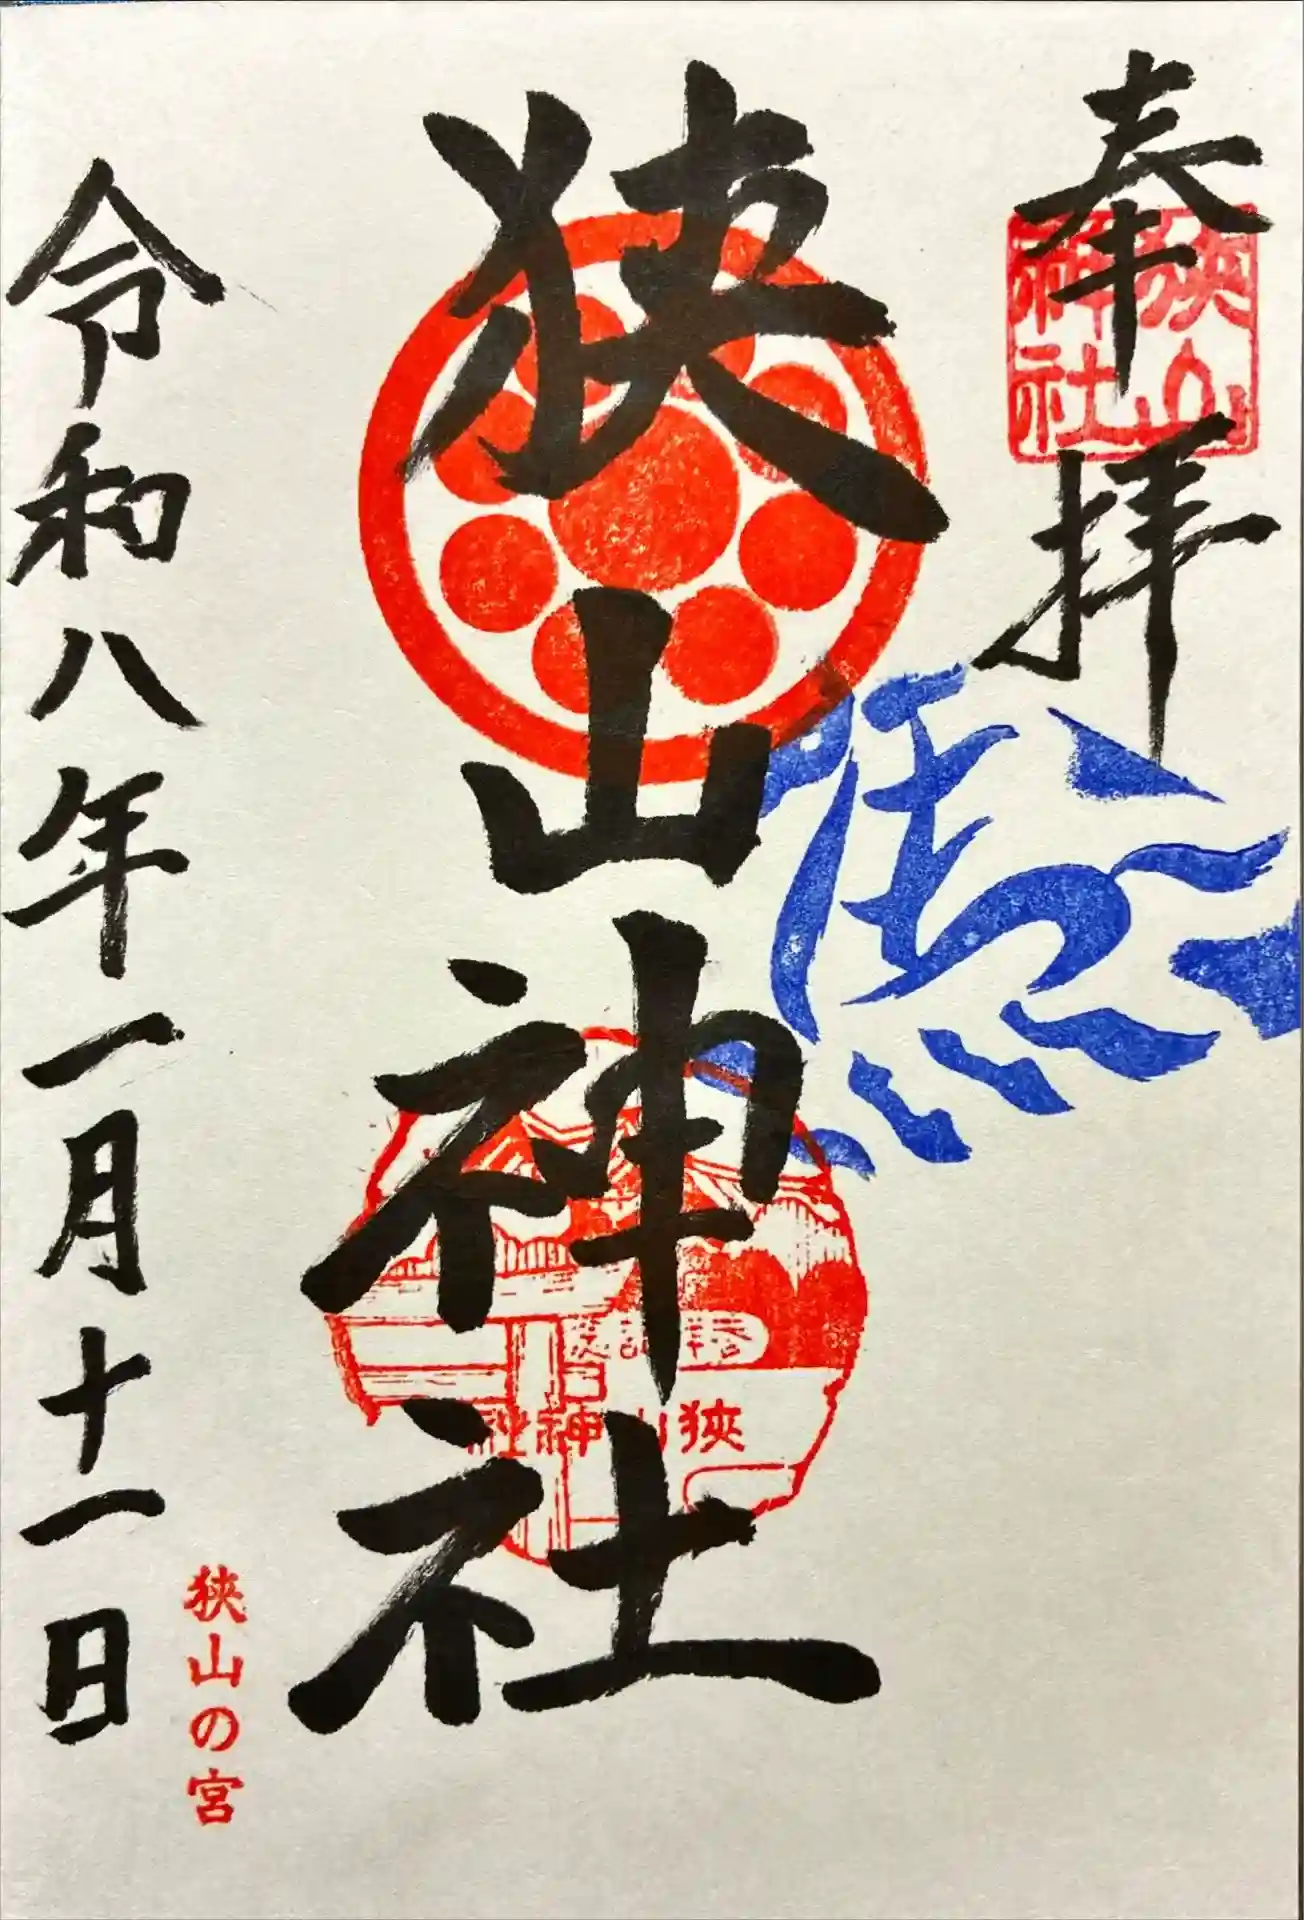 奉拝
狭山神社
狭山神社
参拝記念
狭山神社
令和八年一月十一日
狭山の宮